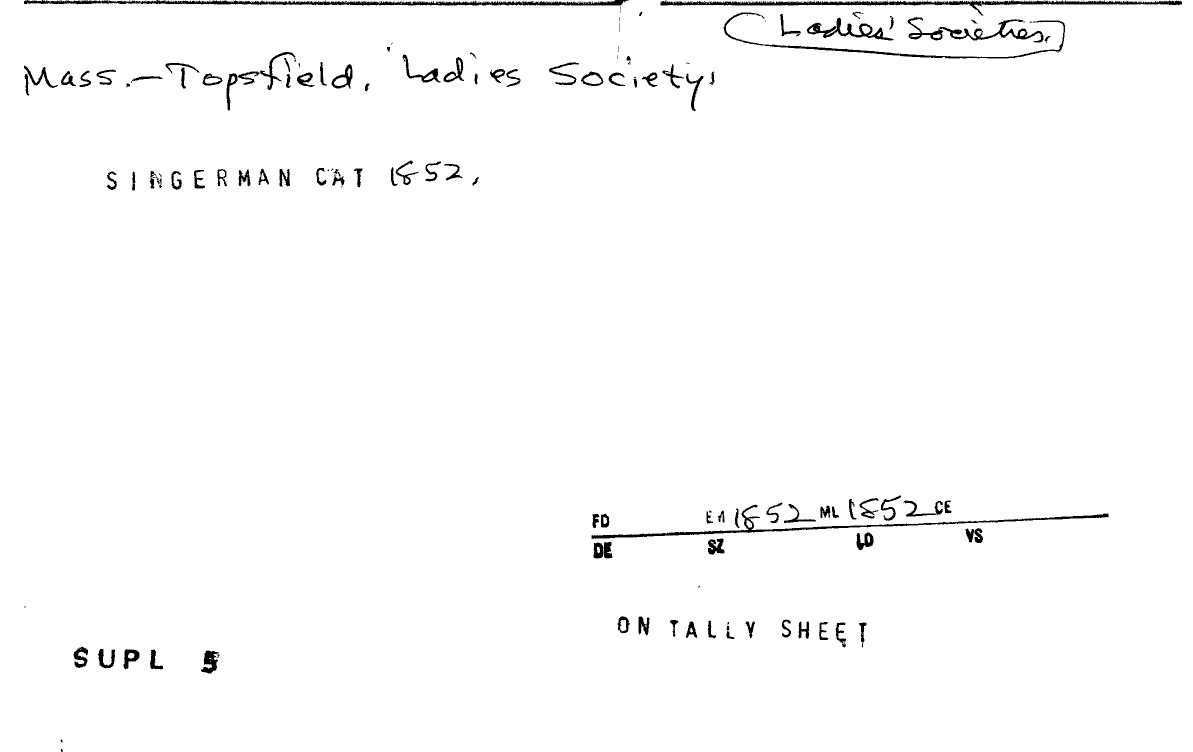 Ladies' Societies.
Mass.—Topsfield. Ladies Society.
SINGERMAN CAT 1852,
FD EA 1852 ML 1852 CE
DE SZ LD VS
ON TALLY SHEET
SUPL 5